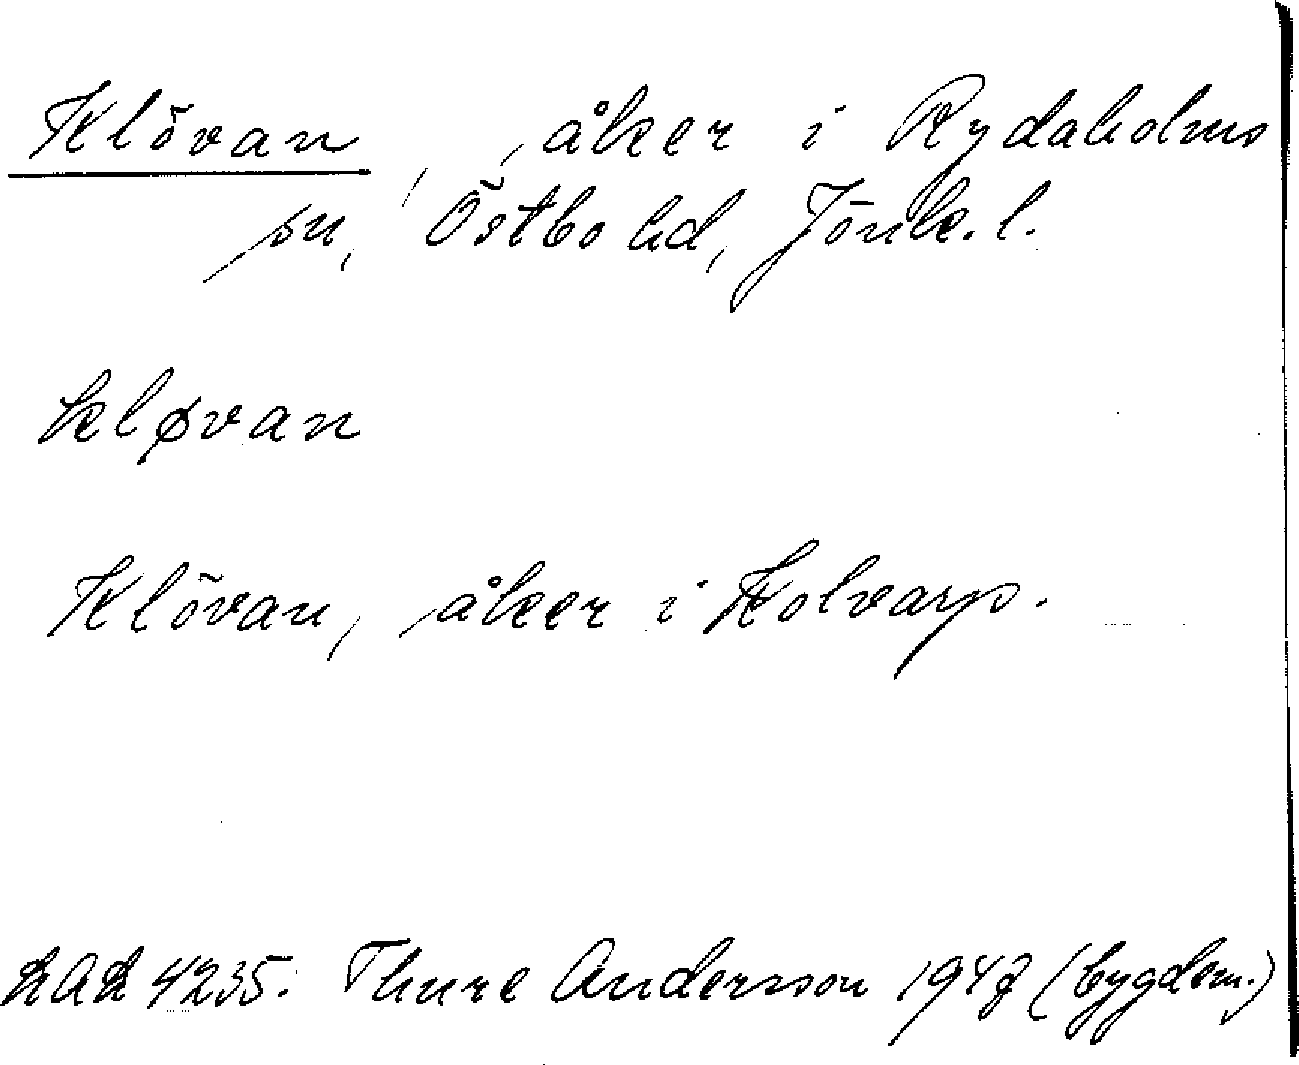 Klövan, åker i Rydaholms
sn, Östbo hd, Jönk. l.
kløvan
Klövan, åker i Kolvarp.
4235. Thure Andersson (bygdem.)